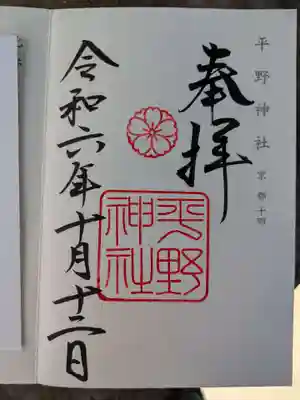 平野神社
奉拝
平野
神社
令和六年十月十二日